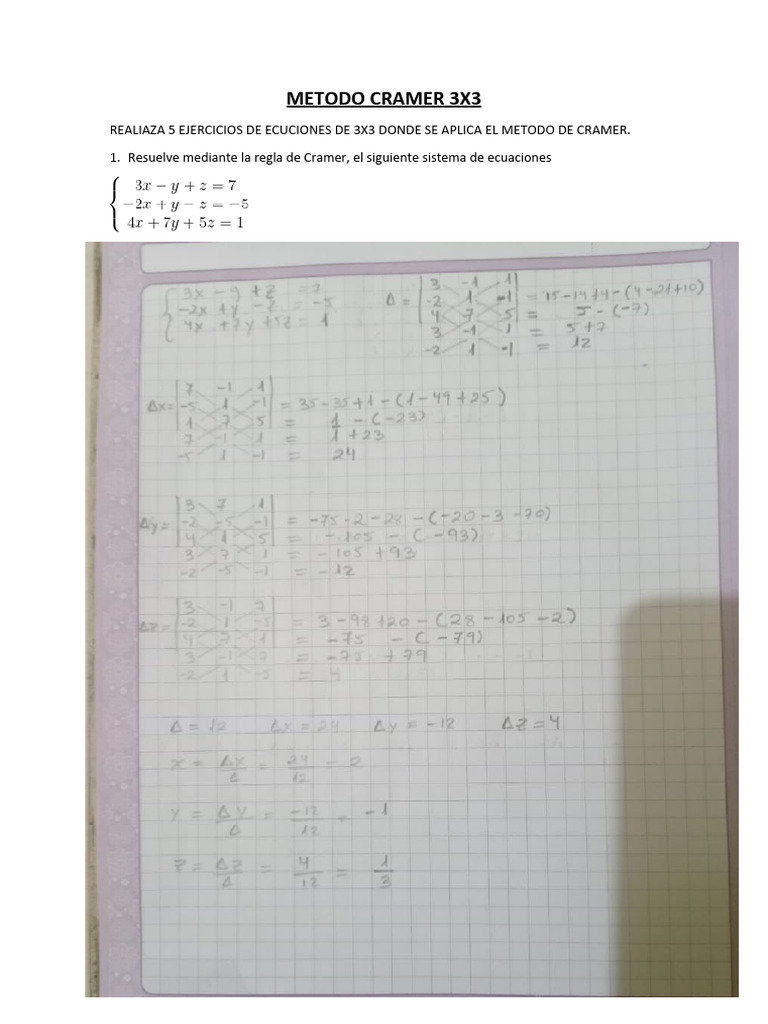 METODO CRAMER 3X3
REALIAZA 5 EJERCICIOS DE ECUCIONES DE 3X3 DONDE SE APLICA EL METODO DE CRAMER.
1. Resuelve mediante la regla de Cramer, el siguiente sistema de ecuaciones
3x − y + z = 7
−2x + y − z = −5
4x + 7y + 5z = 1
3x - y + z = 7
-2x + y - z = -5
4x + 7y + 5z = 1
Δ = | 3 -1 1 |
-2 1 -1 = 15-14+4-(4-21+10)
4 7 5 = 5-(-7)
3 -1 1 = 5+7
-2 1 -1 = 12
7 -1 1
Δx= -5 1 -1 = 35-35+1-(1-49+25)
1 7 5 = 1 -(-23)
7 -1 1 = 1+23
-5 1 -1 = 24
3 7 1
Δy= -2 -5 -1 = -75-2-28-(-20-3-70)
4 1 5 = -105 - (-93)
3 7 1 = -105 +93
-2 -5 -1 = -12
3 -1 7
Δz= -2 1 -5 = 3-98+20-(28-105-2)
4 7 1 = -75 - (-79)
3 -1 7 = -75 +79
-2 1 -5 = 4
Δ = 12 Δx = 24 Δy = -12 Δz = 4
x = Δx/Δ = 24/12 = 2
y = Δy/Δ = -12/12 = -1
z = Δz/Δ = 4/12 = 1/3